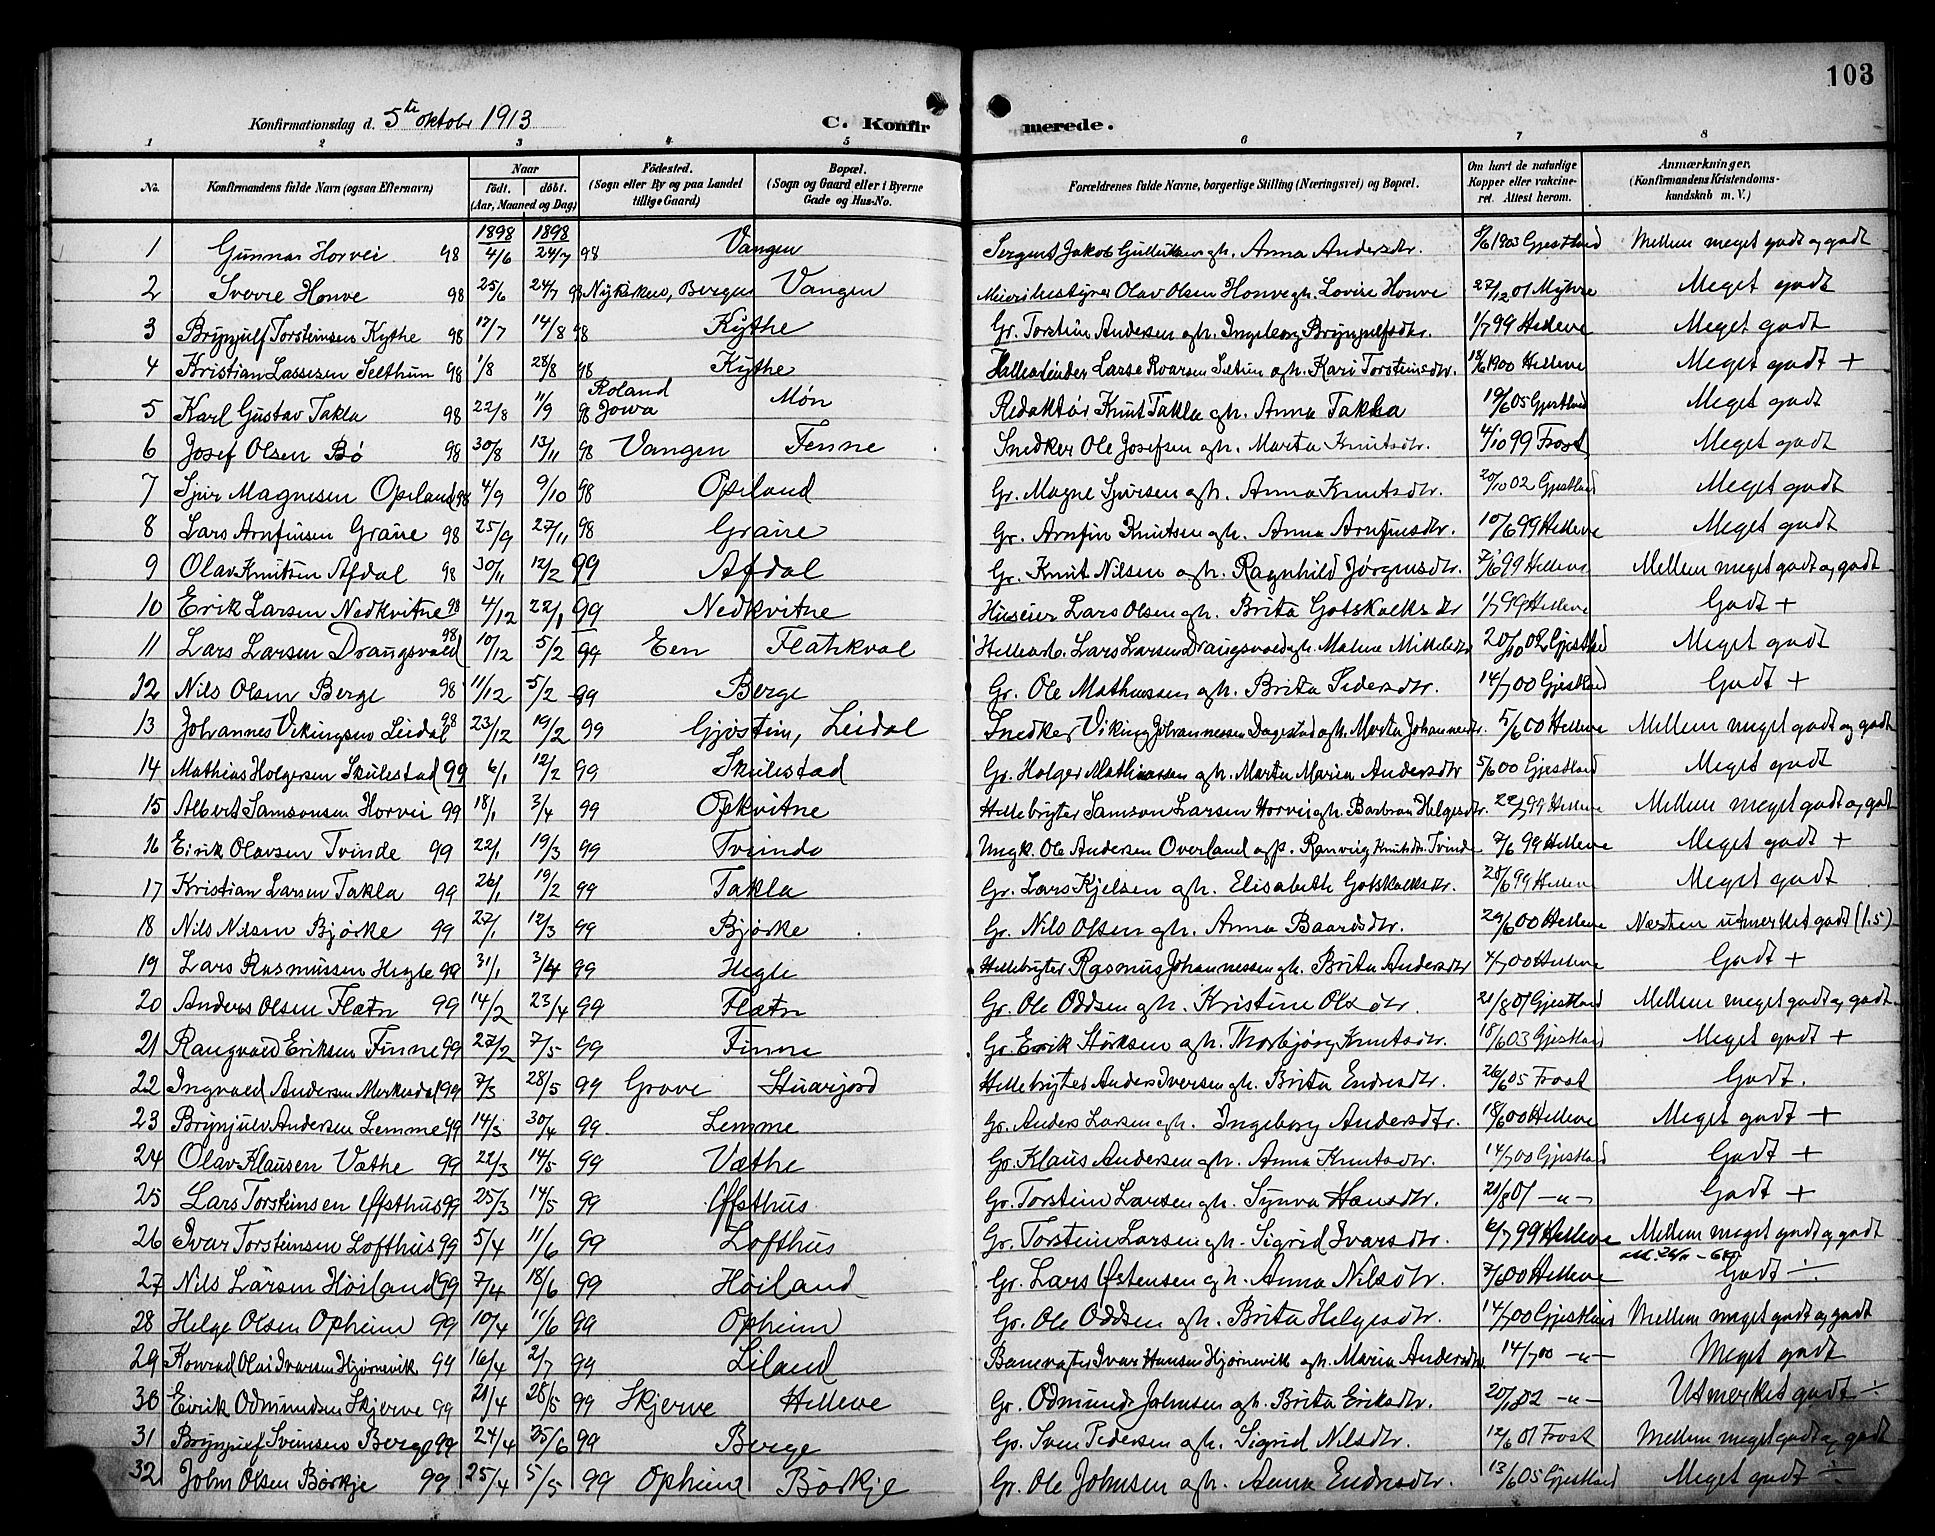 103
Konfirmationsdag d. 5te oktobr 1913 C. Konfirmerede.
1 2 3 4 5 6 7 8
No. Konfirmandens fulde Navn (ogsaa Efternavn) Naar født. døbt. (Aar, Maaned og Dag) Fødested. (Sogn eller By og paa Landet tillige Gaard) Bopæl. (Sogn og Gaard eller i Byerne Gade og Hus-No. Forældrenes fulde Navne, borgerlige Stilling (Næringsvei) og Bopæl. Om havt de naturlige Kopper eller vakcineret. Attest herom. Anmærkninger. (Konfirmandens Kristendomskundskab m. V.)
1898 1898
1 Gunnar Horvei 98 4/6 24/7 98 Vangen Sergent Jakob gh. Anna Andersdtr. 8/6 1903 Gjestland Mellem meget godt og godt
2 Sverre Honve 98 25/6 24/7 98 Nykirken, Bergen Vangen Meieribestyrer Olav Olsen Honve gh. Lovise Honve 27/12 01 Myhre Meget godt
3 Brynjulf Torsteinsen Kythe 98 17/7 14/8 98 Kythe Gr. Torstein Andersen gh. Ingeborg Brynjulfsdtr. 1/7 99 Helleve Meget godt
4 Kristian Lassesen Selthun 98 1/8 28/8 98 Kythe Lasse Roarsen gh. Kari Torsteinsdtr. 18/6 1900 Helleve Meget godt +
5 Karl Gustav Takla 98 22/8 11/9 98 Roland Jowa Møn Redaktør Knut Takla gh. Anna Takla 19/6 05 Gjestland Meget godt
6 Josef Olsen Bø 98 30/8 13/11 98 Vangen Fenne Snedker Ole Josefsen gh. Marta Knutsdtr. 4/10 99 Frost Meget godt
7 Sjur Magnesen Opeland 98 4/9 9/10 98 Opeland Gr. Magne Sjursen gh. Anna Knutsdtr. 20/10 02 Gjestland Meget godt
8 Lars Arnfinsen Graue 98 25/9 27/11 98 Graue Gr. Arnfin Knutsen gh. Anna Arnfinsdtr. 10/6 99 Helleve Meget godt
9 Olav Knutsen Afdal 98 30/11 12/2 99 Afdal Gr. Knut Nilsen gh. Ragnhild Jørgensdtr. 7/6 99 Helleve Mellem meget godt og godt
10 Erik Larsen Nedkvitne 98 4/12 22/1 99 Nedkvitne Huseier Lars Olsen gh. Brita Gotskalksdtr 1/7 99 Helleve Godt +
11 Lars Larsen Draugsvold 98 10/12 5/2 99 Een Flatekval Lars Larsen Draugsvold gh. Malene Mikkelsdtr 20/10 02 Gjestland Meget godt
12 Nils Olsen Berge 98 11/12 5/2 99 Berge Gr. Ole Mathiassen gh. Brita Pedersdtr. 14/7 00 Gjestland Godt +
13 Johannes Vikingsen Leidal 98 23/12 19/2 99 Gjøstein, Leidal Snedker Viking Johannessen Dagestad gh. Marta Johannesdtr. 5/6 00 Helleve Mellem meget godt og godt
14 Mathias Holgersen Skulestad 99 6/1 12/2 99 Skulestad Gr. Holger Mathiassen gh. Marta Maria Andersdtr 5/6 00 Gjestland Meget godt
15 Albert Samsonsen Horvei 99 18/1 3/4 99 Opkvitne Hellebryter Samson Larsen Horvei gh. Barbra Helgesdtr. 22/7 99 Helleve Mellem meget godt og godt
16 Eirik Olavsen Tvinde 99 22/1 19/3 99 Tvinde Ungk. Ole Andersen Overland og p. Ranveig Knutsdtr. Tvinde 7/6 99 Helleve Meget godt +
17 Kristian Larsen Takla 99 26/1 19/2 99 Takla Gr. Lars Kjelsen gh. Elisabeth Gotskalksdtr. 28/6 99 Helleve Meget godt
18 Nils Nilsen Bjørke 99 27/1 12/3 99 Bjørke Gr. Nils Olsen gh. Anna Baardsdtr. 29/6 00 Helleve Næsten utmerket godt (1.5)
19 Lars Rasmussen Hegle 99 31/1 3/4 99 Hegle Hellebryter Rasmus Johannessen gh. Brita Andersdtr 4/7 00 Helleve Godt +
20 Anders Olsen Flætn 99 14/2 23/4 99 Flætn Gr. Ole Oddsen gh. Kristine Olsdtr. 21/8 07 Gjestland Mellem meget godt og godt
21 Rangvald Eriksen Finne 99 27/2 7/5 99 Finne Gr. Erik Størksen gh. Thorbjørg Knutsdtr. 18/6 03 Gjestland Meget godt +
22 Ingvald Andersen Merkesdal 99 7/3 28/5 99 Grove Hellebryter Anders Iversen gh. Brita Endresdtr. 26/6 05 Frost Godt.
23 Brynjulv Andersen Lemme 99 14/3 30/4 99 Lemme Gr. Anders Larsen gh. Ingeborg Andersdtr. 18/6 00 Helleve Meget godt +
24 Olav Klausen Væthe 99 22/3 14/5 99 Væthe Gr. Klaus Andersen gh. Anna Knutsdtr. 14/7 00 Gjestland Godt +
25 Lars Torsteinsen Øfsthus 99 25/3 14/5 99 Øfsthus Gr. Torstein Larsen gh. Synva Hansdtr. 21/8 07 -"- Godt +
26 Ivar Torsteinsen Lofthus 99 5/4 11/6 99 Lofthus Gr. Torstein Larsen gh. Sigrid Ivarsdtr. 6/7 99 Helleve Mellem meget godt og godt
27 Nils Larsen Høiland 99 7/4 18/6 99 Høiland Gr. Lars Østensen gh. Anna Nilsdtr. 7/6 00 Helleve Godt ÷
28 Helge Olsen Opheim 99 10/4 11/6 99 Opheim Gr. Ole Oddsen gh. Brita Helgesdtr. 14/7 00 Gjestland Mellem meget godt og godt
29 Konrad Olai Ivarsen Hjørnevik 99 16/4 2/7 99 Liland Banevogter Ivar Hansen Hjørnevik gh. Maria Andersdtr 14/7 00 -"- Meget godt
30 Eirik Odmundsen Skjerve 99 21/4 28/5 99 Skjerve Helleve Gr. Odmund Johnsen gh. Brita Eriksdtr. 20/1 02 -"- Utmerket godt ÷
31 Brynjulf Svensen Berge 99 24/4 25/6 99 Berge Gr. Sven Pedersen gh. Sigrid Nilsdtr. 12/6 01 Frost Mellem meget godt og godt
32 John Olsen Børkje 99 25/4 5/5 99 Opheim Børkje Gr. Ole Johnsen gh. Anna Endresdtr. 13/6 05 Gjestland Meget godt ÷